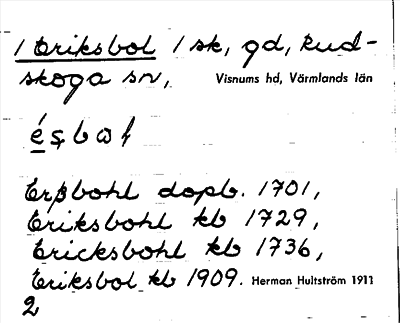 1 Eriksbol 1 sk, gd, Rud-
skoga sn, Visnums hd, Värmlands län
Erßbohl dopb. 1701,
Eriksbohl kb 1729,
Ericksbohl kb 1736,
Eriksbol kb 1909. Herman Hultström 1911
2